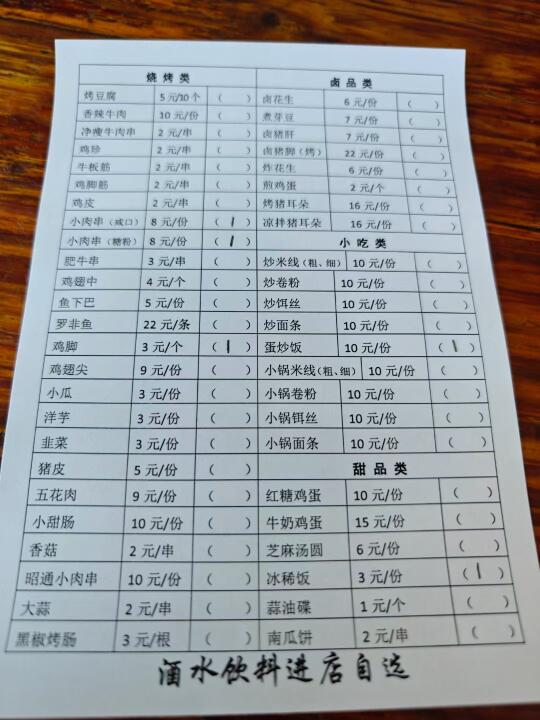 烧烤类 卤品类
烤豆腐 5元/10个 （ ） 卤花生 6元/份 （ ）
香辣牛肉 10元/份 （ ） 煮芽豆 7元/份 （ ）
净瘦牛肉串 2元/串 （ ） 卤猪肝 7元/份 （ ）
鸡珍 2元/串 （ ） 卤猪脚（烤） 22元/份 （ ）
牛板筋 2元/串 （ ） 炸花生 6元/份 （ ）
鸡脚筋 2元/串 （ ） 煎鸡蛋 2元/个 （ ）
鸡皮 2元/串 （ ） 烤猪耳朵 16元/份 （ ）
小肉串（咸口） 8元/份 （ 1 ） 凉拌猪耳朵 16元/份 （ ）
小肉串（糖粉） 8元/份 （ 1 ） 小吃类
肥牛串 3元/串 （ ） 炒米线（粗、细） 10元/份 （ ）
鸡翅中 4元/个 （ ） 炒卷粉 10元/份 （ ）
鱼下巴 5元/份 （ ） 炒饵丝 10元/份 （ ）
罗非鱼 22元/条 （ ） 炒面条 10元/份 （ ）
鸡脚 3元/个 （ 1 ） 蛋炒饭 10元/份 （ 1 ）
鸡翅尖 9元/份 （ ） 小锅米线（粗、细） 10元/份 （ ）
小瓜 3元/份 （ ） 小锅卷粉 10元/份 （ ）
洋芋 3元/份 （ ） 小锅饵丝 10元/份 （ ）
韭菜 3元/份 （ ） 小锅面条 10元/份 （ ）
猪皮 5元/份 （ ） 甜品类
五花肉 9元/份 （ ） 红糖鸡蛋 10元/份 （ ）
小甜肠 10元/份 （ ） 牛奶鸡蛋 15元/份 （ ）
香菇 2元/串 （ ） 芝麻汤圆 6元/份 （ ）
昭通小肉串 10元/份 （ ） 冰稀饭 3元/份 （ 1 ）
大蒜 2元/串 （ ） 蒜油碟 1元/个 （ ）
黑椒烤肠 3元/根 （ ） 南瓜饼 2元/串 （ ）
酒水饮料进店自选